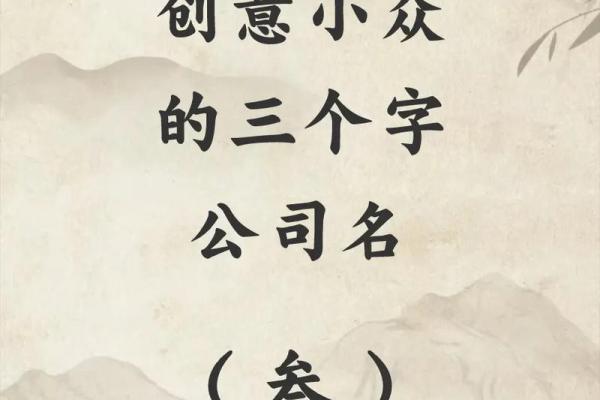 创意小众
的三个字
公司名
（叁）